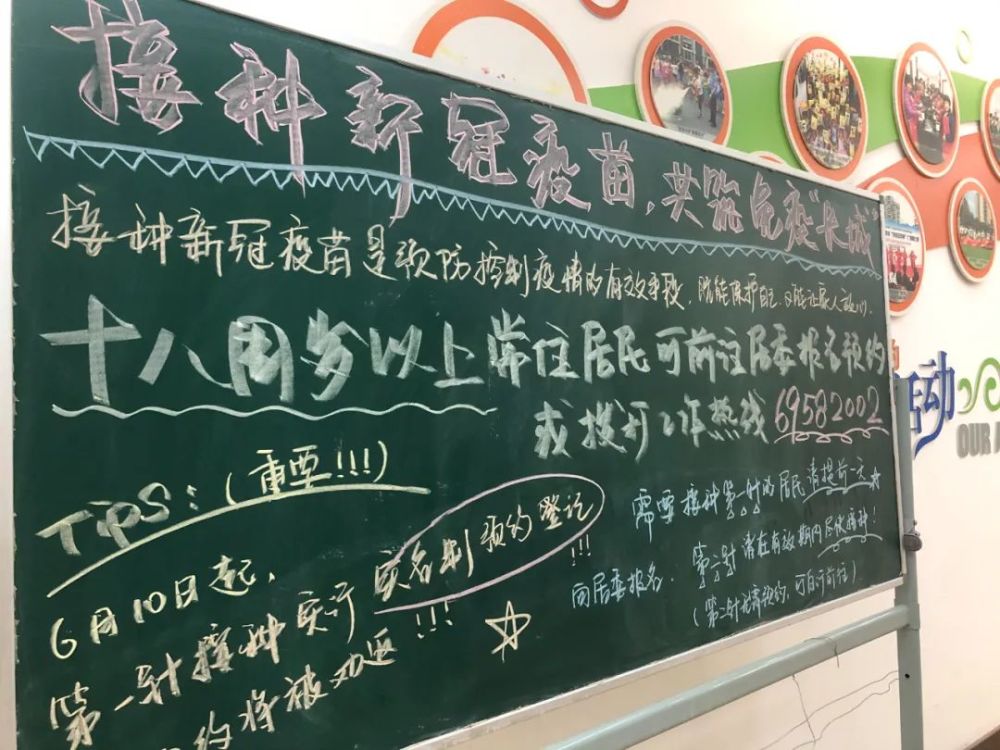 接种新冠疫苗，共筑免疫长城
接种新冠疫苗是预防控制疫情的有效手段，既能保护自己，又能让家人放心。
十八周岁以上常住居民可前往居委报名预约
或拨打工作热线69582002
Tips：（重要!!!）
6月10日起，
第一针接种实行实名制预约登记!!!
约将被劝返!!!
需要接种第一针的居民请提前一天
向居委报名．第二针请在有效期内尽快接种！
（第二针无需预约，可自行前往）
活动
OUR